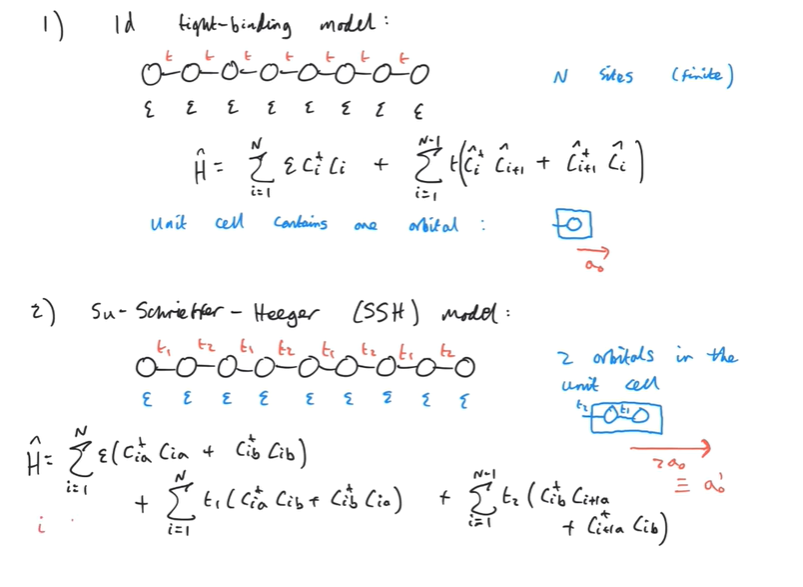 1) 1d tight-binding model:
t t t t t t t
ε ε ε ε ε ε ε ε
N sites (finite)
Ĥ = ∑_{i=1}^{N} ε c_i^† c_i + ∑_{i=1}^{N-1} t(ĉ_i^† ĉ_{i+1} + ĉ_{i+1}^† ĉ_i)
Unit cell contains one orbital:
a₀
2) Su-Schrieffer-Heeger (SSH) model:
t₁ t₂ t₁ t₂ t₁ t₂ t₁ t₂
ε ε ε ε ε ε ε ε ε
2 orbitals in the
unit cell
t₂ t₁
2a₀
≡ a₀'
Ĥ = ∑_{i=1}^{N} ε(c_{ia}^† c_{ia} + c_{ib}^† c_{ib})
+ ∑_{i=1}^{N} t₁(c_{ia}^† c_{ib} + c_{ib}^† c_{ia}) + ∑_{i=1}^{N-1} t₂(c_{ib}^† c_{i+1a}
+ c_{i+1a}^† c_{ib})
i